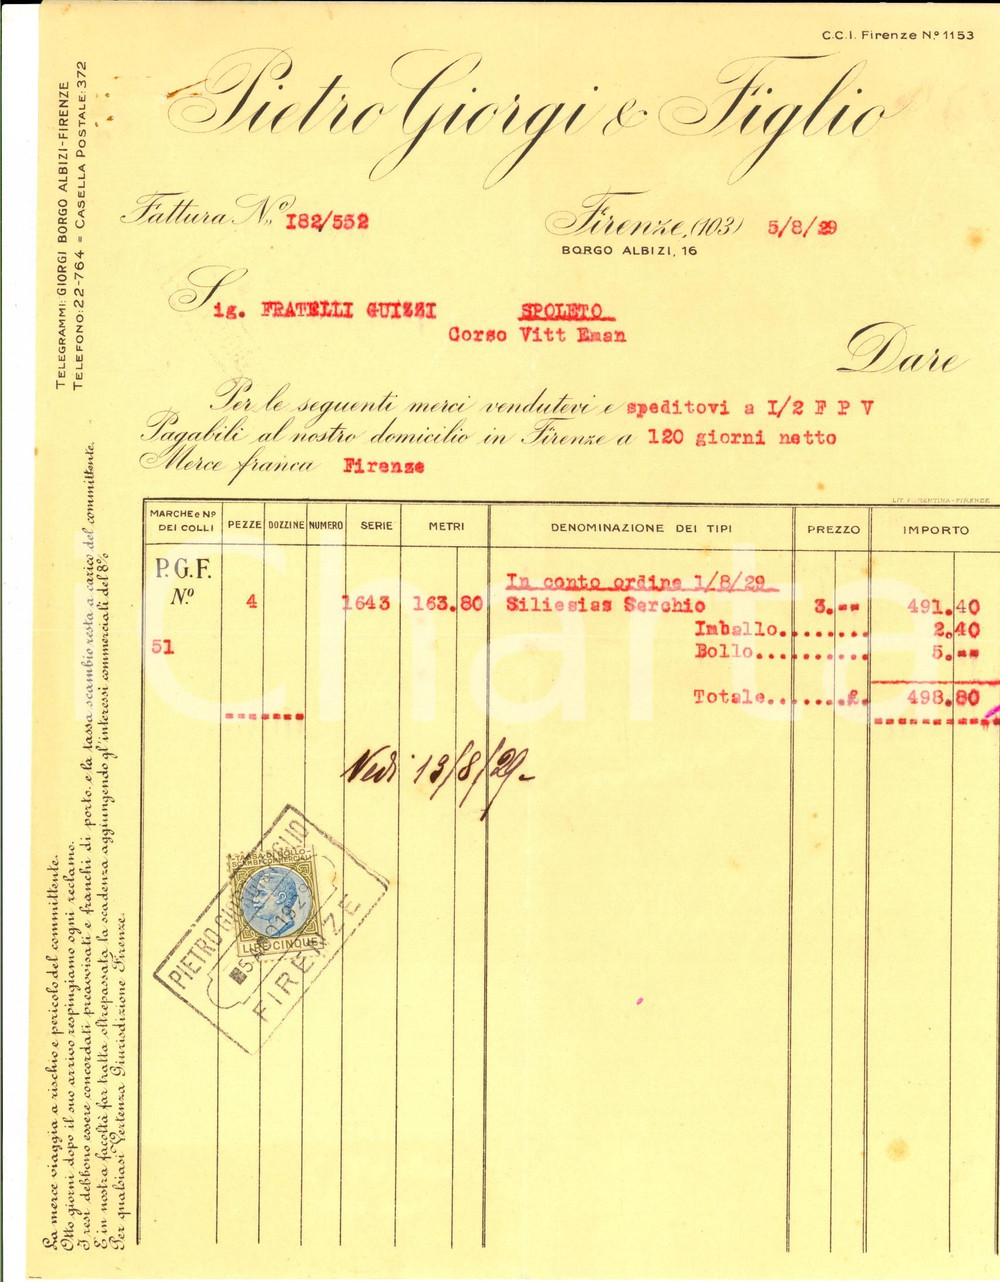 C.C.I. Firenze N.º 1153
Pietro Giorgi & Figlio
TELEGRAMMI: GIORGI BORGO ALBIZI-FIRENZE
TELEFONO: 22-764 = CASELLA POSTALE: 372
Fattura N.º 182/552
Firenze, (103) 5/8/29
BORGO ALBIZI, 16
Sig. FRATELLI GUIZZI SPOLETO
Corso Vitt Eman
Dare
Per le seguenti merci vendutevi e speditovi a I/2 F P V
Pagabili al nostro domicilio in Firenze a 120 giorni netto
Merce franca Firenze
LIT. FIORENTINA-FIRENZE
MARCHE e Nº DEI COLLI PEZZE DOZZINE NUMERO SERIE METRI DENOMINAZIONE DEI TIPI PREZZO IMPORTO
P.G.F.
In conto ordine 1/8/29
Nº 4 1643 163.80 Siliesias Serchio 3.-- 491.40
Imballo........ 2.40
51 Bollo.......... 5.--
Totale........£. 498.80
Vedi 13/8/29-
TASSA DI BOLLO
SCAMBI COMMERCIALI
LIRE CINQUE
PIETRO GIORGI & FIGLIO
FIRENZE
La merce viaggia a rischio e pericolo del committente.
Otto giorni dopo il suo arrivo respingiamo ogni reclamo.
I resi debbono essere concordati preavvisati e franchi di porto, e la tassa scambio resta a carico del committente.
È in nostra facoltà far tratta oltrepassata la scadenza aggiungendo gl'interessi commerciali del 8%
Per qualsiasi Vertenza Giurisdizione Firenze.
Charta